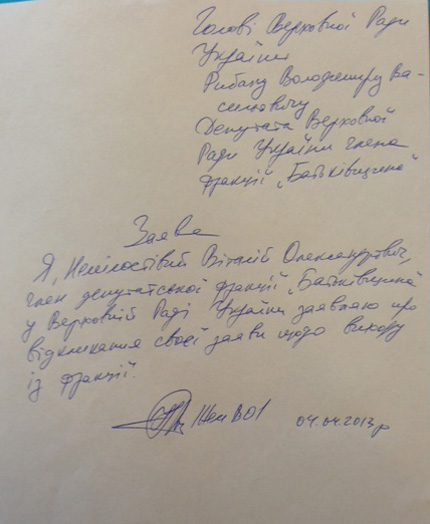 Голові Верховної Ради
України
Рибаку Володимиру Ва-
сильовичу
Депутата Верховної
Ради України члена
фракції „Батьківщина"
Заява
Я, Немілостівий Віталій Олександрович,
член депутатської фракції „Батьківщина"
у Верховній Раді України заявляю про
відкликання своєї заяви щодо виходу
із фракції.
04.04.2013 р